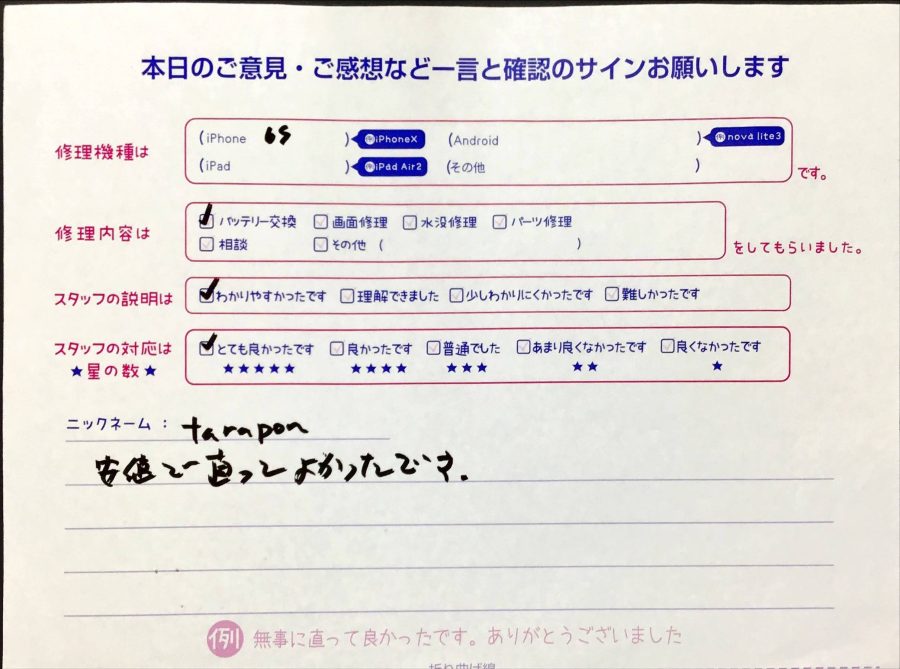 本日のご意見・ご感想など一言と確認のサインお願いします
修理機種は (iPhone 6S ) 例iPhoneX (Android ) 例nova lite3
(iPad ) 例iPad Air2 (その他 ) です。
修理内容は バッテリー交換 画面修理 水没修理 パーツ修理
相談 その他 ( ) をしてもらいました。
スタッフの説明は わかりやすかったです 理解できました 少しわかりにくかったです 難しかったです
スタッフの対応は とても良かったです 良かったです 普通でした あまり良くなかったです 良くなかったです
★星の数★ ★★★★★ ★★★★ ★★★ ★★ ★
ニックネーム： tarapon
安値で直ってよかったです.
例 無事に直って良かったです。ありがとうございました